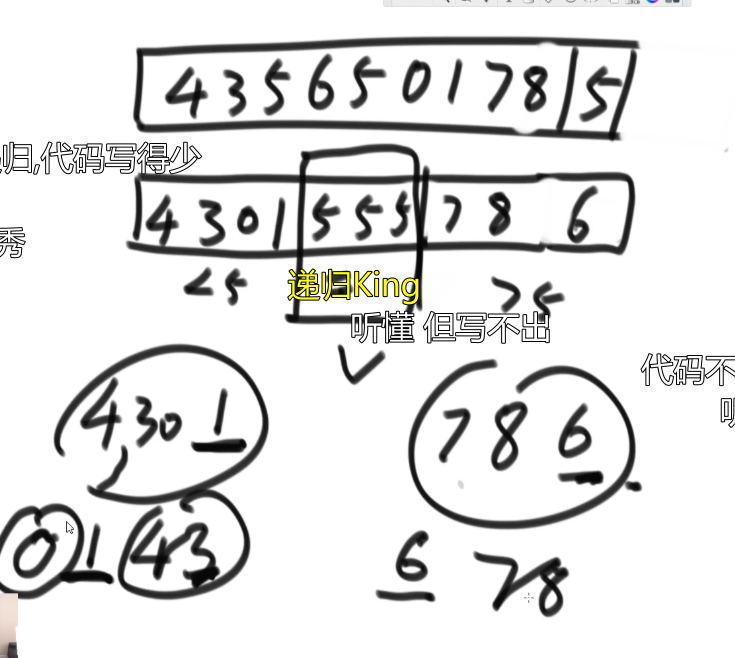 4 3 5 6 5 0 1 7 8 5
归,代码写得少
4 3 0 1 5 5 5 7 8 6
秀
<5 递归King >5
听懂 但写不出
代码不
4 3 0 1 7 8 6
0 1 4 3 6 7 8